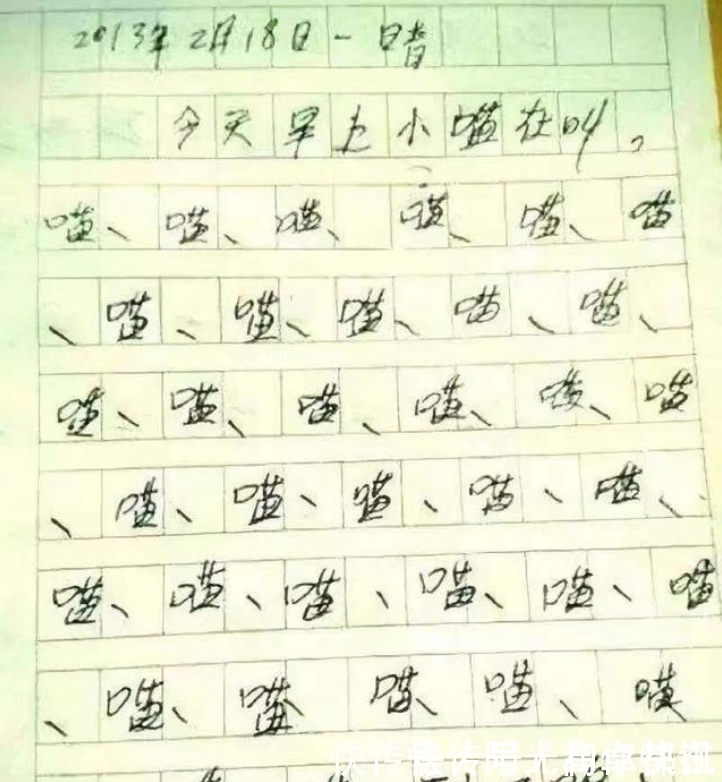 2013年2月18日一 晴
今天早上小喵在叫。
喵、喵、喵、喵、喵、喵
、喵、喵、喵、喵、喵、
喵、喵、喵、喵、喵、喵
、喵、喵、喵、喵、喵、
喵、喵、喵、喵、喵、喵
、喵、喵 喵、喵、喵